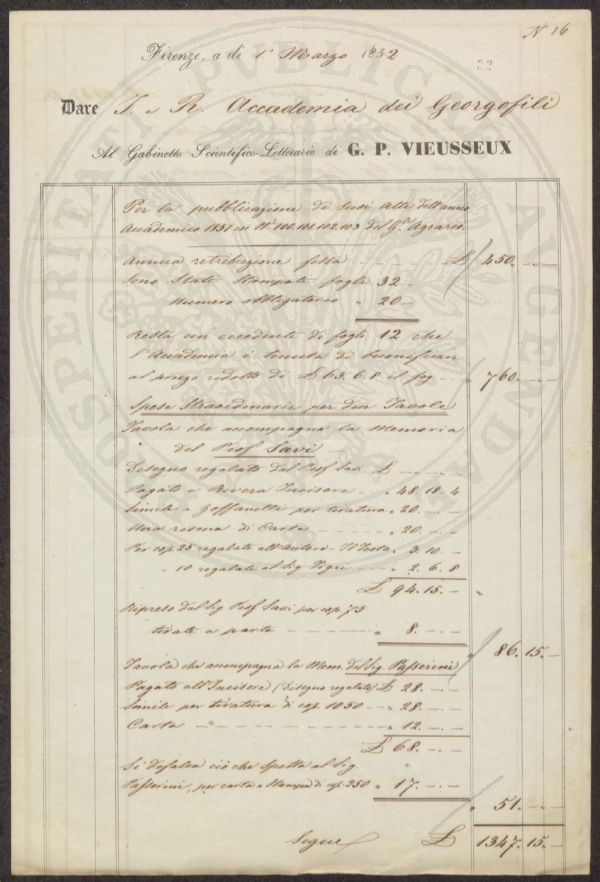 N° 16
Firenze, a dì 1° Marzo 1852
22
Dare I. e R. Accademia dei Georgofili
Al Gabinetto Scientifico-Letterario di G. P. VIEUSSEUX
Per la pubblicazione de suoi Atti dell'anno
Accademico 1851 in N.i 100.101.102.103 del G.le Agrario.
Annua retribuzione fissa £ 450. — —
Sono State Stampate fogli 32 —
Numero obbligatorio " 20 —
Resta un eccedente di fogli 12 che
l'Accademia è tenuta di buonificare
al prezzo ridotto di £ 63.6.8 il fog. " 760. — —
Spese Straordinarie per due Tavole
Tavola che accompagna la Memoria
del Prof Savi —
Disegno regalato dal Prof Savi £ — — —
Pagato a Rivera Incisore " 48. 18. 4
Simile a Zoffanelli per tiratura " 20. — —
Una risma di Carta " 20. — —
Per cop. 25 regalate all'Autore - Il Testo " 3. 10. —
" 10 regalate al Sig. " 2. 6. 8
£ 94. 15. —
Ripreso dal Sig Prof Savi per cop. 75
tirate a parte " 8. — —
" 86. 15. —
Tavola che accompagna la Mem. del Sig. Passerini
Pagato all'Incisore (disegno regalato) £ 28. — —
Simile per tiratura di cop. 1050 " 28. — —
Carta " 12. — —
£ 68. — —
Si defalca ciò che spetta al Sig
Passerini, per carta e Stampa di cop. 250 " 17. — —
" 51. — —
Segue £ 1347. 15. —
PROSPERITATI PUBLICAE AUGENDAE